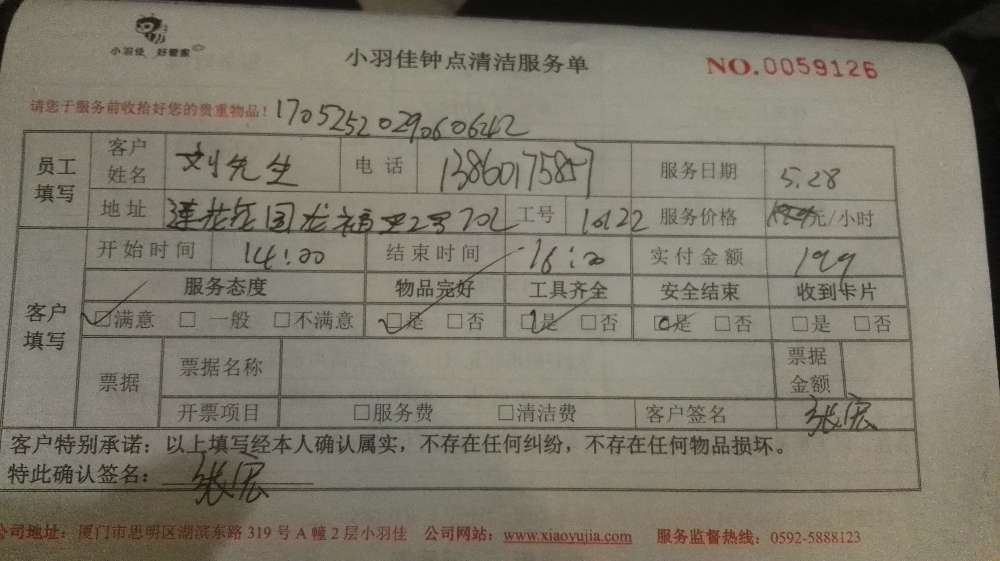 小羽佳 好管家
小羽佳钟点清洁服务单
NO.0059126
请您于服务前收拾好您的贵重物品! 17052520290606242
员工填写 客户姓名 刘先生 电话 13860175857 服务日期 5.28
地址 莲花 国龙福 2号702 工号 10122 服务价格 元/小时
客户填写 开始时间 14:00 结束时间 16:00 实付金额 199
服务态度 物品完好 工具齐全 安全结束 收到卡片
□满意 □一般 □不满意 □是 □否 □是 □否 □是 □否 □是 □否
票据 票据名称 票据金额
开票项目 □服务费 □清洁费 客户签名 张宏
客户特别承诺:以上填写经本人确认属实,不存在任何纠纷,不存在任何物品损坏。
特此确认签名: 张宏
公司地址:厦门市思明区湖滨东路319号A幢2层小羽佳 公司网站:www.xiaoyujia.com 服务监督热线:0592-5888123